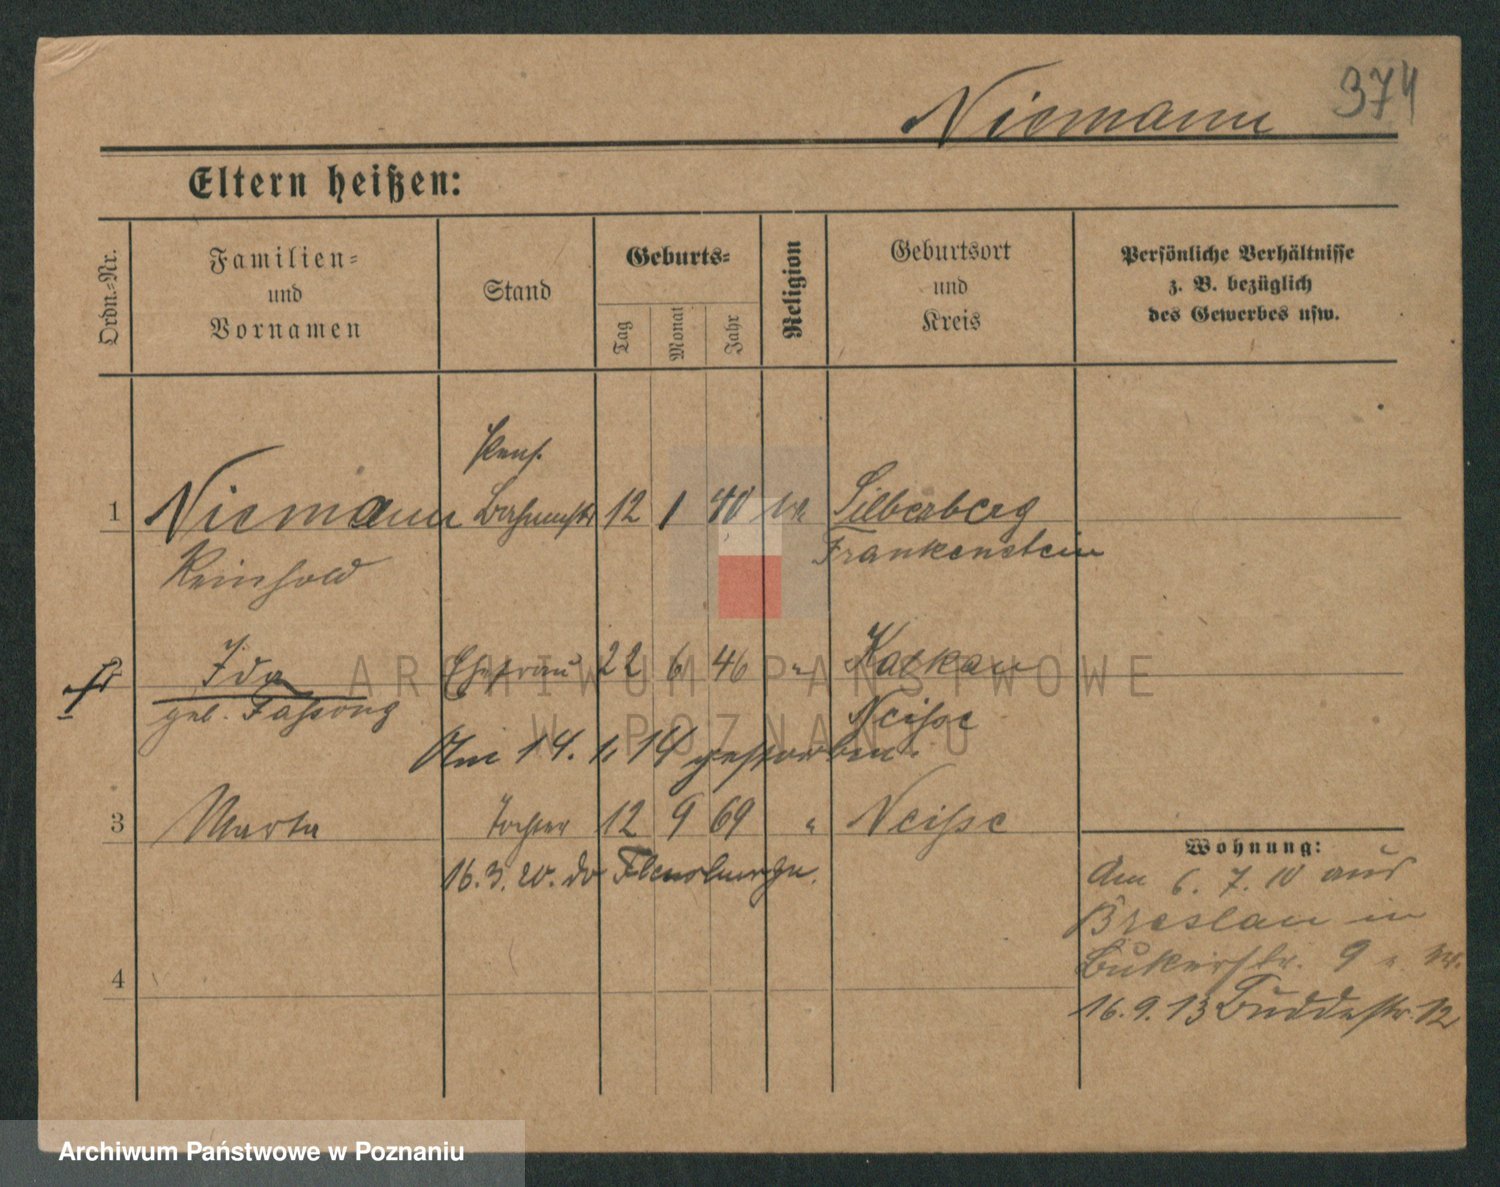 374
Niemann
Eltern heißen:
Ordn.-Nr.
Familien-
und
Vornamen
Stand
Geburts-
Tag
Monat
Jahr
Religion
Geburtsort
und
Kreis
Persönliche Verhältnisse
z. B. bezüglich
des Gewerbes usw.
Pens.
1 Niemann 12 1 40 Silberberg
Reinhold Frankenstein
Ida Ehefrau 22 6 46 " Kalkau
geb. Fassong Neisse
Am 14. 1. 14 gestorben.
3 Marta Tochter 12 9 69 " Neisse
16. 3. 20.
Wohnung:
Am 6. 7. 10 aus
Breslau in
Bukerstr. 9
4
16. 9. 13 Buddestr. 12
ARCHIWUM PAŃSTWOWE
W POZNANIU
Archiwum Państwowe w Poznaniu